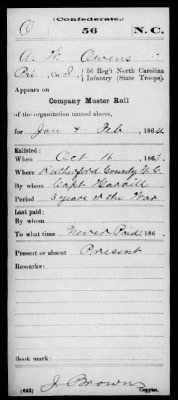 (Confederate.)
O 56 N.C.
A. W. Owens
Pvt, Co. I, 56 Reg't North Carolina
Infantry (State Troops).
Appears on
Company Muster Roll
of the organization named above,
for Jan & Feb, 1864.
Enlisted:
When Oct 16, 1863.
Where Rutherford County N.C.
By whom Capt. Harrill
Period 3 years or the War
Last paid:
By whom
To what time Never Paid, 186 .
Present or absent Present
Remarks:
Book mark:
(642) J. Brown
Copyist.